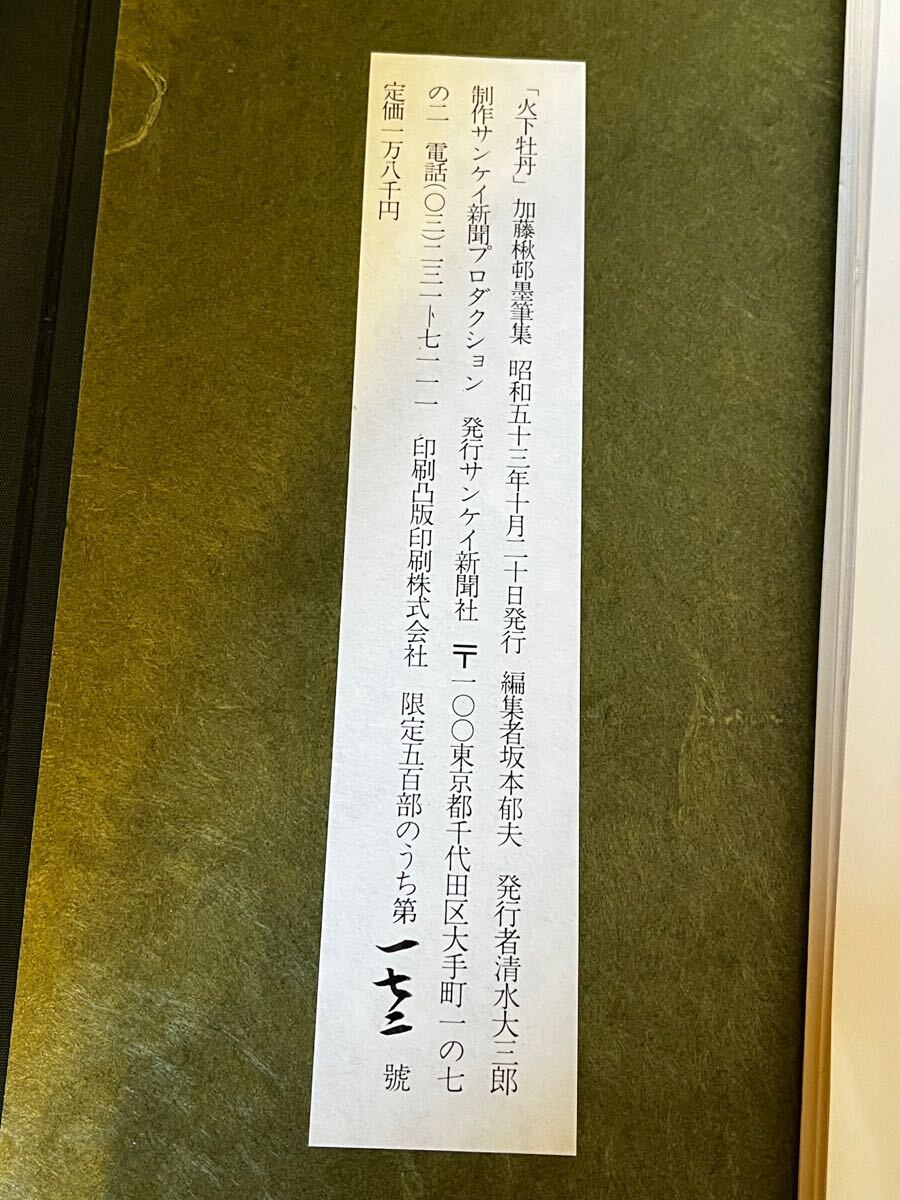 「火下牡丹」 加藤楸邨墨筆集 昭和五十三年十月二十日発行 編集者坂本郁夫 発行者清水大三郎
制作サンケイ新聞プロダクション 発行サンケイ新聞社 〒一〇〇東京都千代田区大手町一の七
の二 電話(〇三)二三一ー七一一一 印刷凸版印刷株式会社 限定五百部のうち第一七二號
定価一万八千円